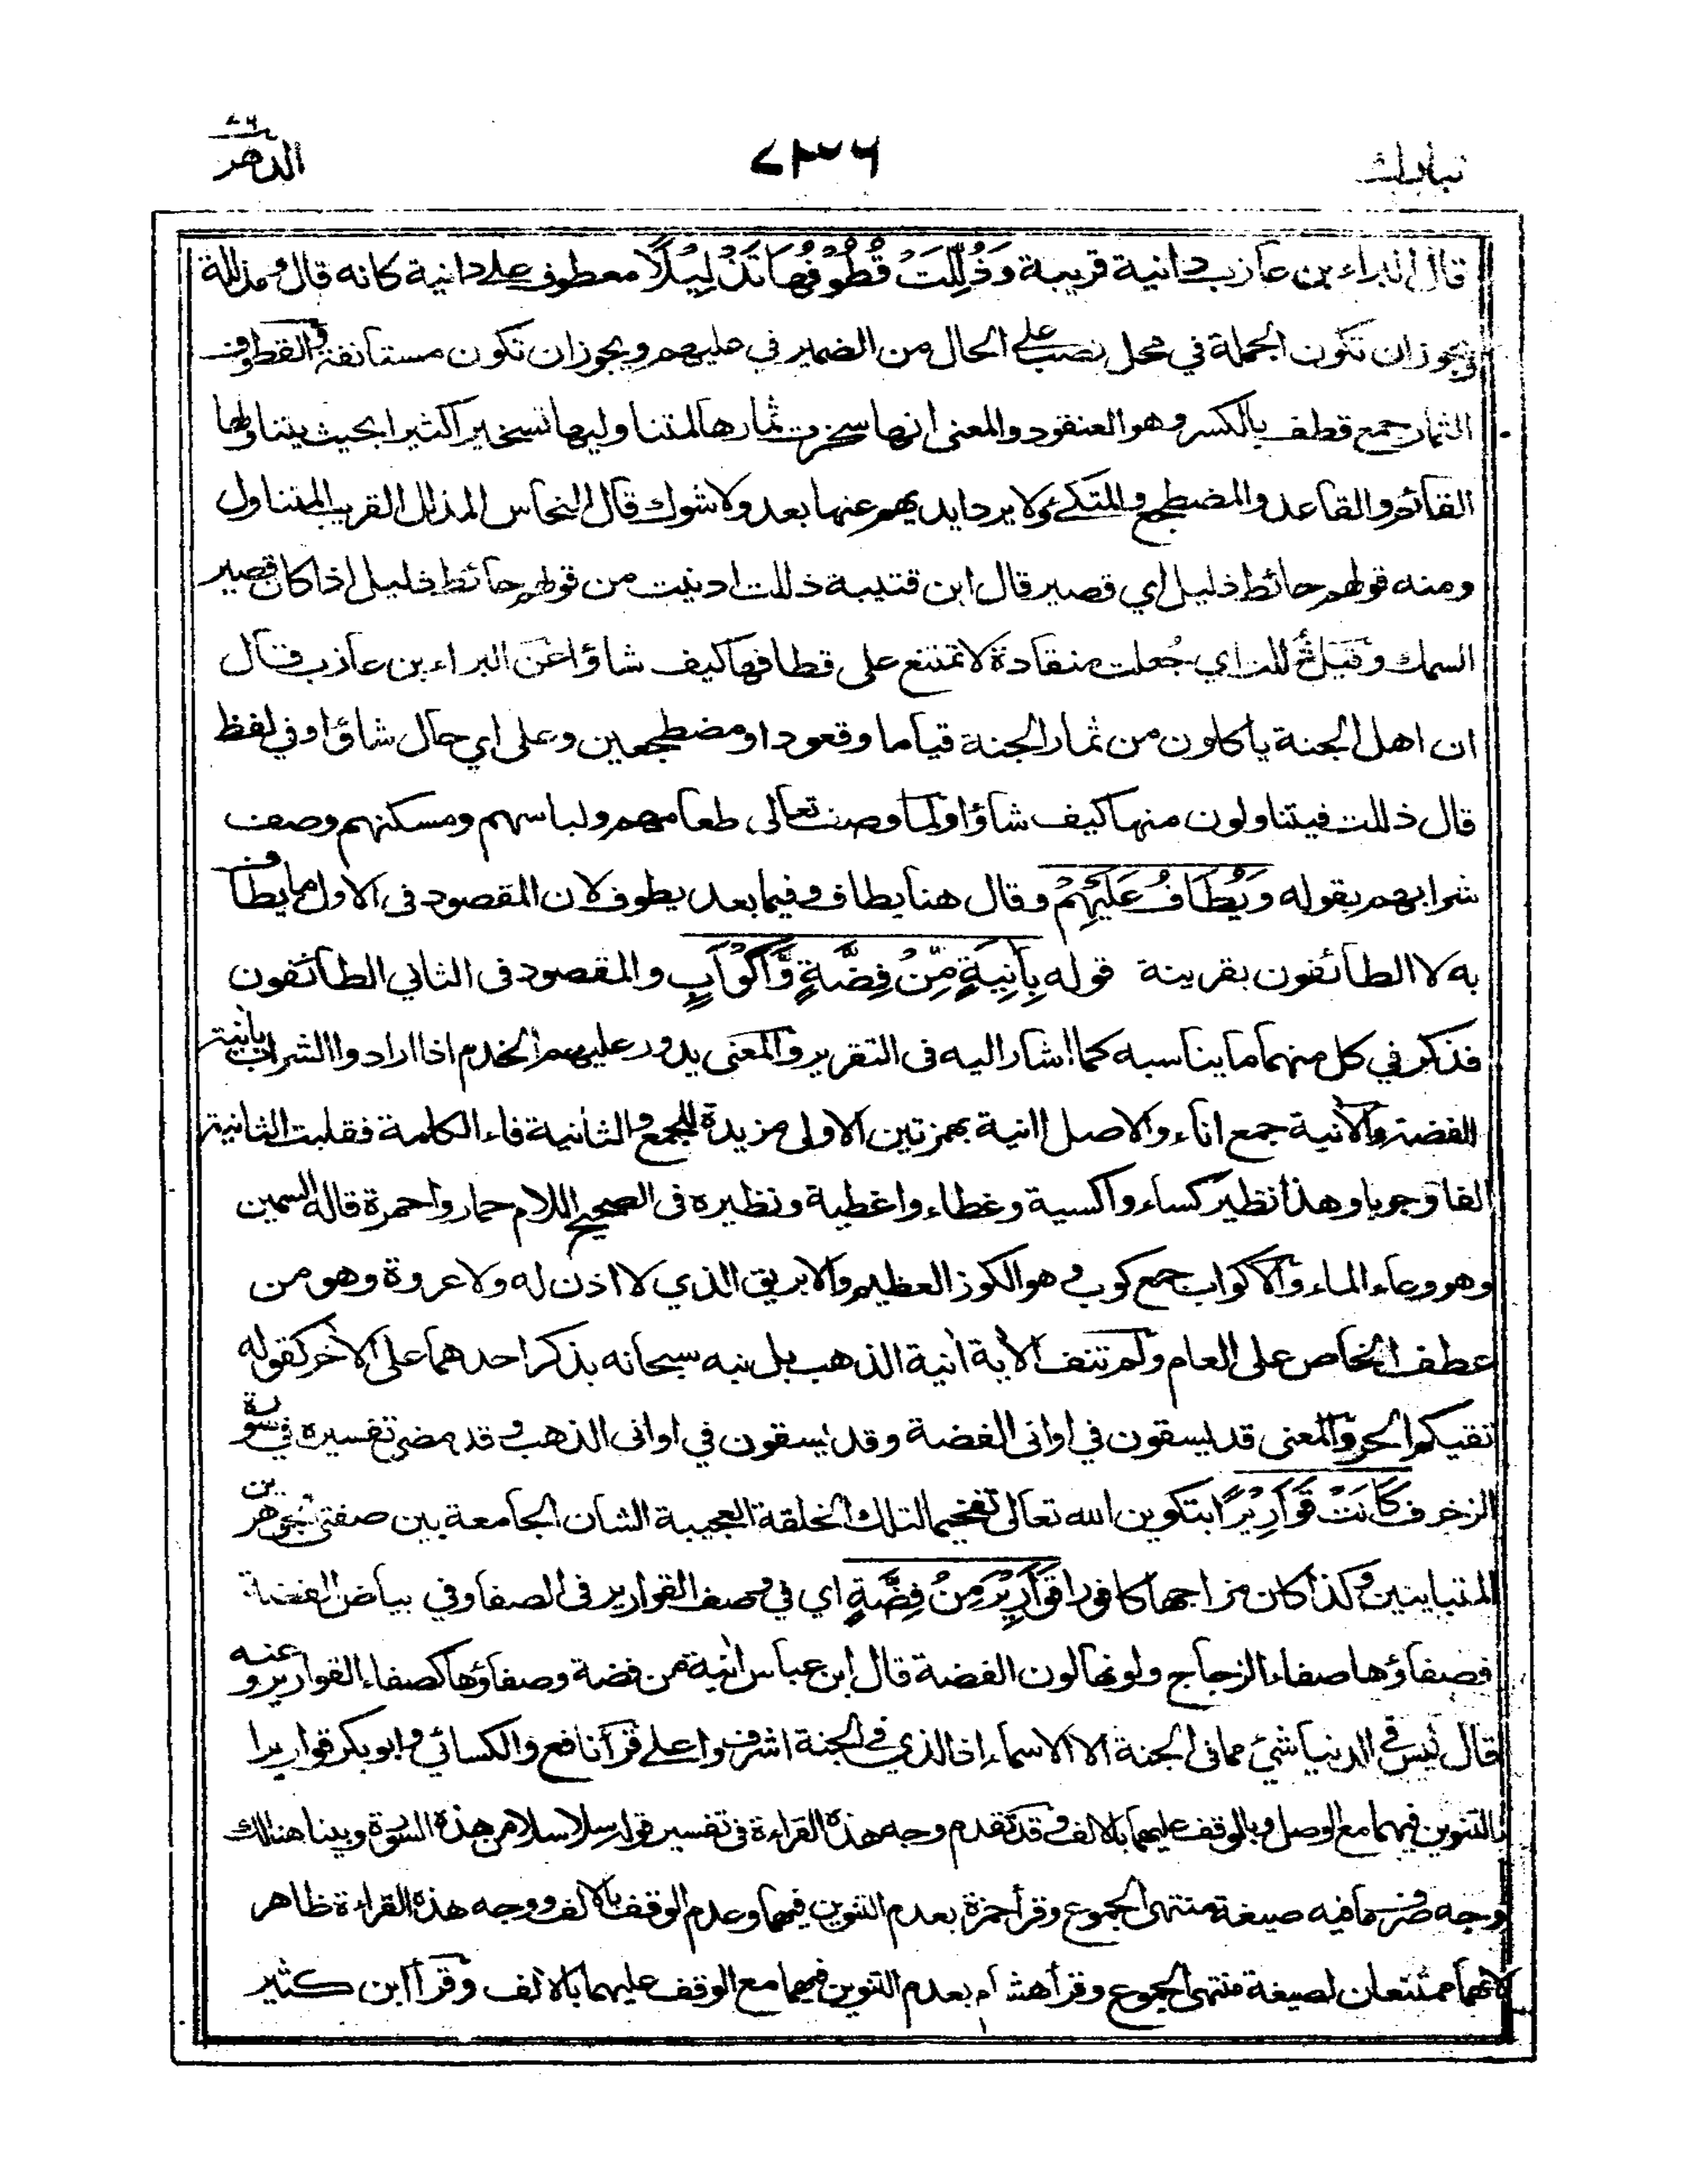 تبارك
الدهر ٧٦
قال البراء بن عازب دانية قريبة وَذُلِّلَتْ قُطُوْفُهَا تَذْلِيْلًا معطوف على دانية كانه قال ومذللة
ويجوز ان تكون الجملة في محل نصب على الحال من الضمير في عليهم ويجوز ان تكون مستأنفة والقطوف
الثمار جمع قطف بالكسر وهو العنقود والمعنى انها سخرت ثمارها لمتناوليها تسخيرا كثيرا بحيث يتناولها
القائم والقاعد والمضطجع والمتكئ ولا يرد ايديهم عنها بعد ولا شوك قال النحاس المذلل القريب المتناول
ومنه قولهم حائط ذليل اي قصير قال ابن قتيبة ذللت ادنيت من قولهم حائط ذليل اذا كان قصير
السمك وقيل ذللت اي جُعلت منقادة لا تمتنع على قطافها كيف شاؤا عن البراء بن عازب قال
ان اهل الجنة ياكلون من ثمار الجنة قياما وقعودا ومضطجعين وعلى اي حال شاؤا وفي لفظ
قال ذللت فيتناولون منها كيف شاؤا ولما وصف تعالى طعامهم ولباسهم ومسكنهم وصف
شرابهم بقوله وَيُطَافُ عَلَيْهِمْ وقال هنا يطاف وفيما بعد يطوف لان المقصود في الاول ما يطاف
به لا الطائفون بقرينة قوله بِآنِيَةٍ مِّنْ فِضَّةٍ وَّاَكْوَابٍ والمقصود في الثاني الطائفون
فذكر في كل منهما ما يناسبه كما اشار اليه في التقرير والمعنى يدور عليهم الخدم اذا ارادوا الشراب بأنية
الفضة والأنية جمع اناء والاصل اانية بهمزتين الاولى مزيدة للجمع والثانية فاء الكلمة فقلبت الثانية
الفا وجوبا وهذا نظير كساء واكسية وغطاء واغطية ونظيره في الصحيح اللام حمار واحمرة قاله السمين
وهو وعاء الماء والاكواب جمع كوب وهو الكوز العظيم والابريق الذي لا اذن له ولا عروة وهو من
عطف الخاص على العام ولم تنف الأية أنية الذهب بل نبه سبحانه بذكر احدهما على الأخر كقوله
تقيكم الحر والمعنى قد يسقون في اوانى الفضة وقد يسقون في اوانى الذهب وقد مضى تفسيره في سورة
الزخرف كَانَتْ قَوَارِيْرًا بتكوين الله تعالى تفخيما لتلك الخلقة العجيبة الشان الجامعة بين صفتي الجوهرين
المتباينين وكذا كان مزاجها كافورا قَوَارِيْرَ مِنْ فِضَّةٍ اي في وصف القوارير في الصفا وفي بياض الفضة
فصفاؤها صفاء الزجاج ولونها لون الفضة قال ابن عباس أنية من فضة وصفاؤها كصفاء القوارير وعنه
قال ليس في الدنيا شئ مما في الجنة الا الاسماء اذ الذي في الجنة اشرف واعلى قرأ نافع والكسائي وابو بكر قواريرا
بالتنوين فيهما مع الوصل وبالوقف عليهما بالالف وقد تقدم وجه هذه القراءة في تفسير قوله سلاسلا من هذه السورة وبينا هنالك
وجه صرف ما فيه صيغة منتهى الجموع وقرأ حمزة بعدم التنوين فيهما وعدم الوقف بالالف ووجه هذه القراءة ظاهر
لانهما ممتنعان لصيغة منتهى الجموع وقرأ هشام بعدم التنوين فيهما مع الوقف عليهما بالالف وقرأ ابن كثير